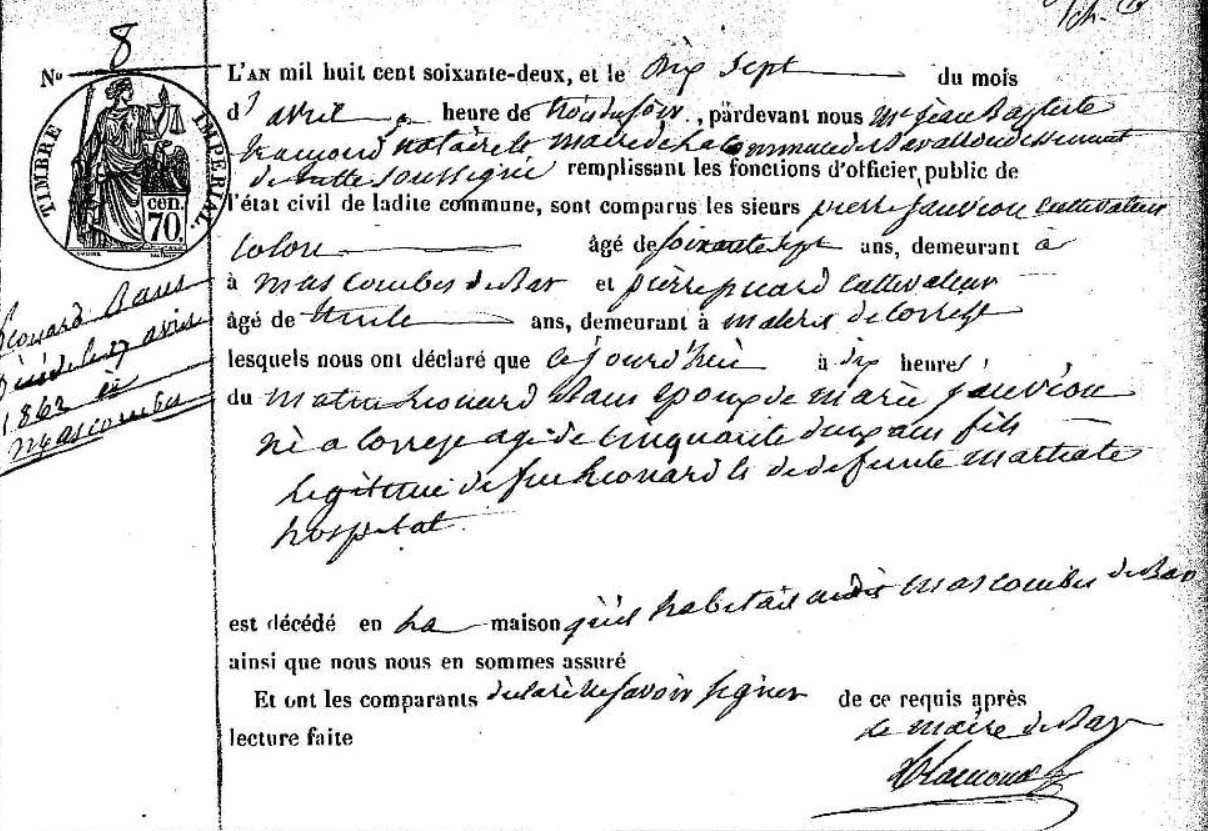 N° 8
L'AN mil huit cent soixante-deux, et le dix sept du mois
d'avril a heure de trois du soir, pardevant nous Mr jean Baptiste
notaire et maire de la Commune de Bar
soussigné remplissant les fonctions d'officier public de
TIMBRE IMPERIAL.
cen. 70.
l'état civil de ladite commune, sont comparus les sieurs pierre jauvion cultivateur
colon âgé de soixante sept ans, demeurant à
à mascombes de Bar et pierre cultivateur
âgé de trente ans, demeurant à de Correze
lesquels nous ont déclaré que ce jourd'hui à dix heures
du matin Leonard époux de marie jauvion
né a Correze agé de cinquante deux ans fils
legitime de feu Leonard et de defunte martiale
hospital.
est décédé en la maison qu'il habitait audit mascombes de Bar
ainsi que nous nous en sommes assuré
Et ont les comparants declaré ne savoir signer de ce requis après
lecture faite
Le maire de Bar
Leonard
décédé le 17 avril
1862 à
mascombes